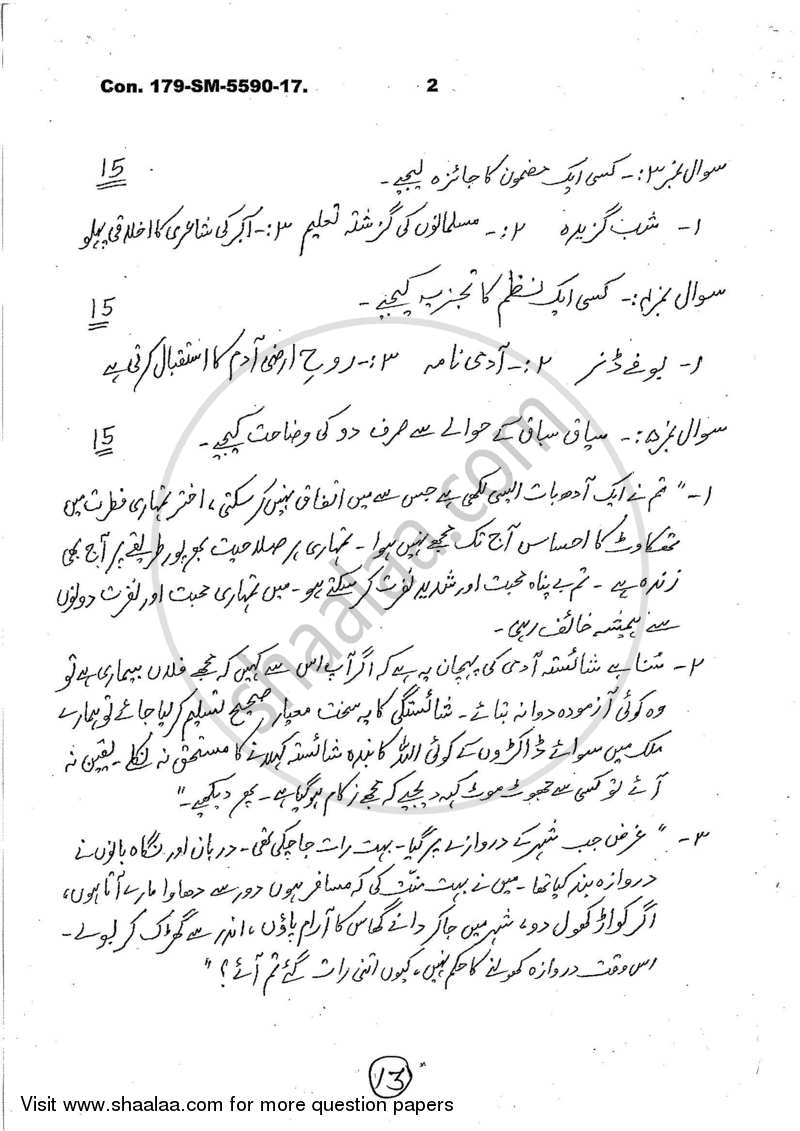 Con. 179-SM-5590-17. 2
سوال نمبر ۳:- کسی ایک مضمون کا جائزہ لیجیے۔ 15
۱- شب گزیدہ ۲:- مسلمانوں کی گزشتہ تعلیم ۳:- اکبر کی شاعری کا اخلاقی پہلو
سوال نمبر ۴:- کسی ایک نظم کا تجزیہ کیجیے۔ 15
۱- بوفے ڈنر ۲:- آدمی نامہ ۳:- روحِ ارضی آدم کا استقبال کرتی ہے
سوال نمبر ۵:- سیاق سباق کے حوالے سے صرف دو کی وضاحت کیجیے۔ 15
۱- "تم نے ایک آدھ بات ایسی لکھی ہے جس سے میں اتفاق نہیں کر سکتی، اختر تمہاری فطرت میں
تھکاوٹ کا احساس آج تک مجھے نہیں ہوا۔ تمہاری ہر صلاحیت بھرپور طریقے پر آج بھی
زندہ ہے۔ تم بے پناہ محبت اور شدید نفرت کر سکتے ہو۔ میں تمہاری محبت اور نفرت دونوں
سے ہمیشہ خائف رہی۔
۲- سُنا ہے شائستہ آدمی کی پہچان یہ ہے کہ اگر آپ اس سے کہیں کہ مجھے فلاں بیماری ہے تو
وہ کوئی آزمودہ دوا نہ بتائے۔ شائستگی کا یہ سخت معیار صحیح تسلیم کر لیا جائے تو ہمارے
ملک میں سوائے ڈاکٹروں کے کوئی اللہ کا بندہ شائستہ کہلانے کا مستحق نہ نکلے۔ یقین نہ
آئے تو کسی سے جھوٹ موٹ کہہ دیجیے کہ مجھے زکام ہو گیا ہے۔ پھر دیکھیے۔"
۳- "غرض جب شہر کے دروازے پر گیا۔ بہت رات جا چکی تھی۔ دربان اور نگاہ بانوں نے
دروازہ بند کیا تھا۔ میں نے بہت منّت کی کہ مسافر ہوں دور سے دھاوا مارے آتا ہوں،
اگر کواڑ کھول دو، شہر میں جا کر دانے گھاس کا آرام پاؤں، اندر سے گھڑک کر بولے۔
اس وقت دروازہ کھولنے کا حکم نہیں، کیوں اتنی رات گئے تم آئے؟"
13
shaalaa.com
Visit www.shaalaa.com for more question papers